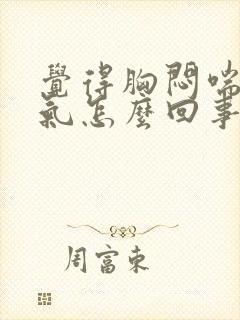 覺得胸悶喘
氣怎麼回事
周富東